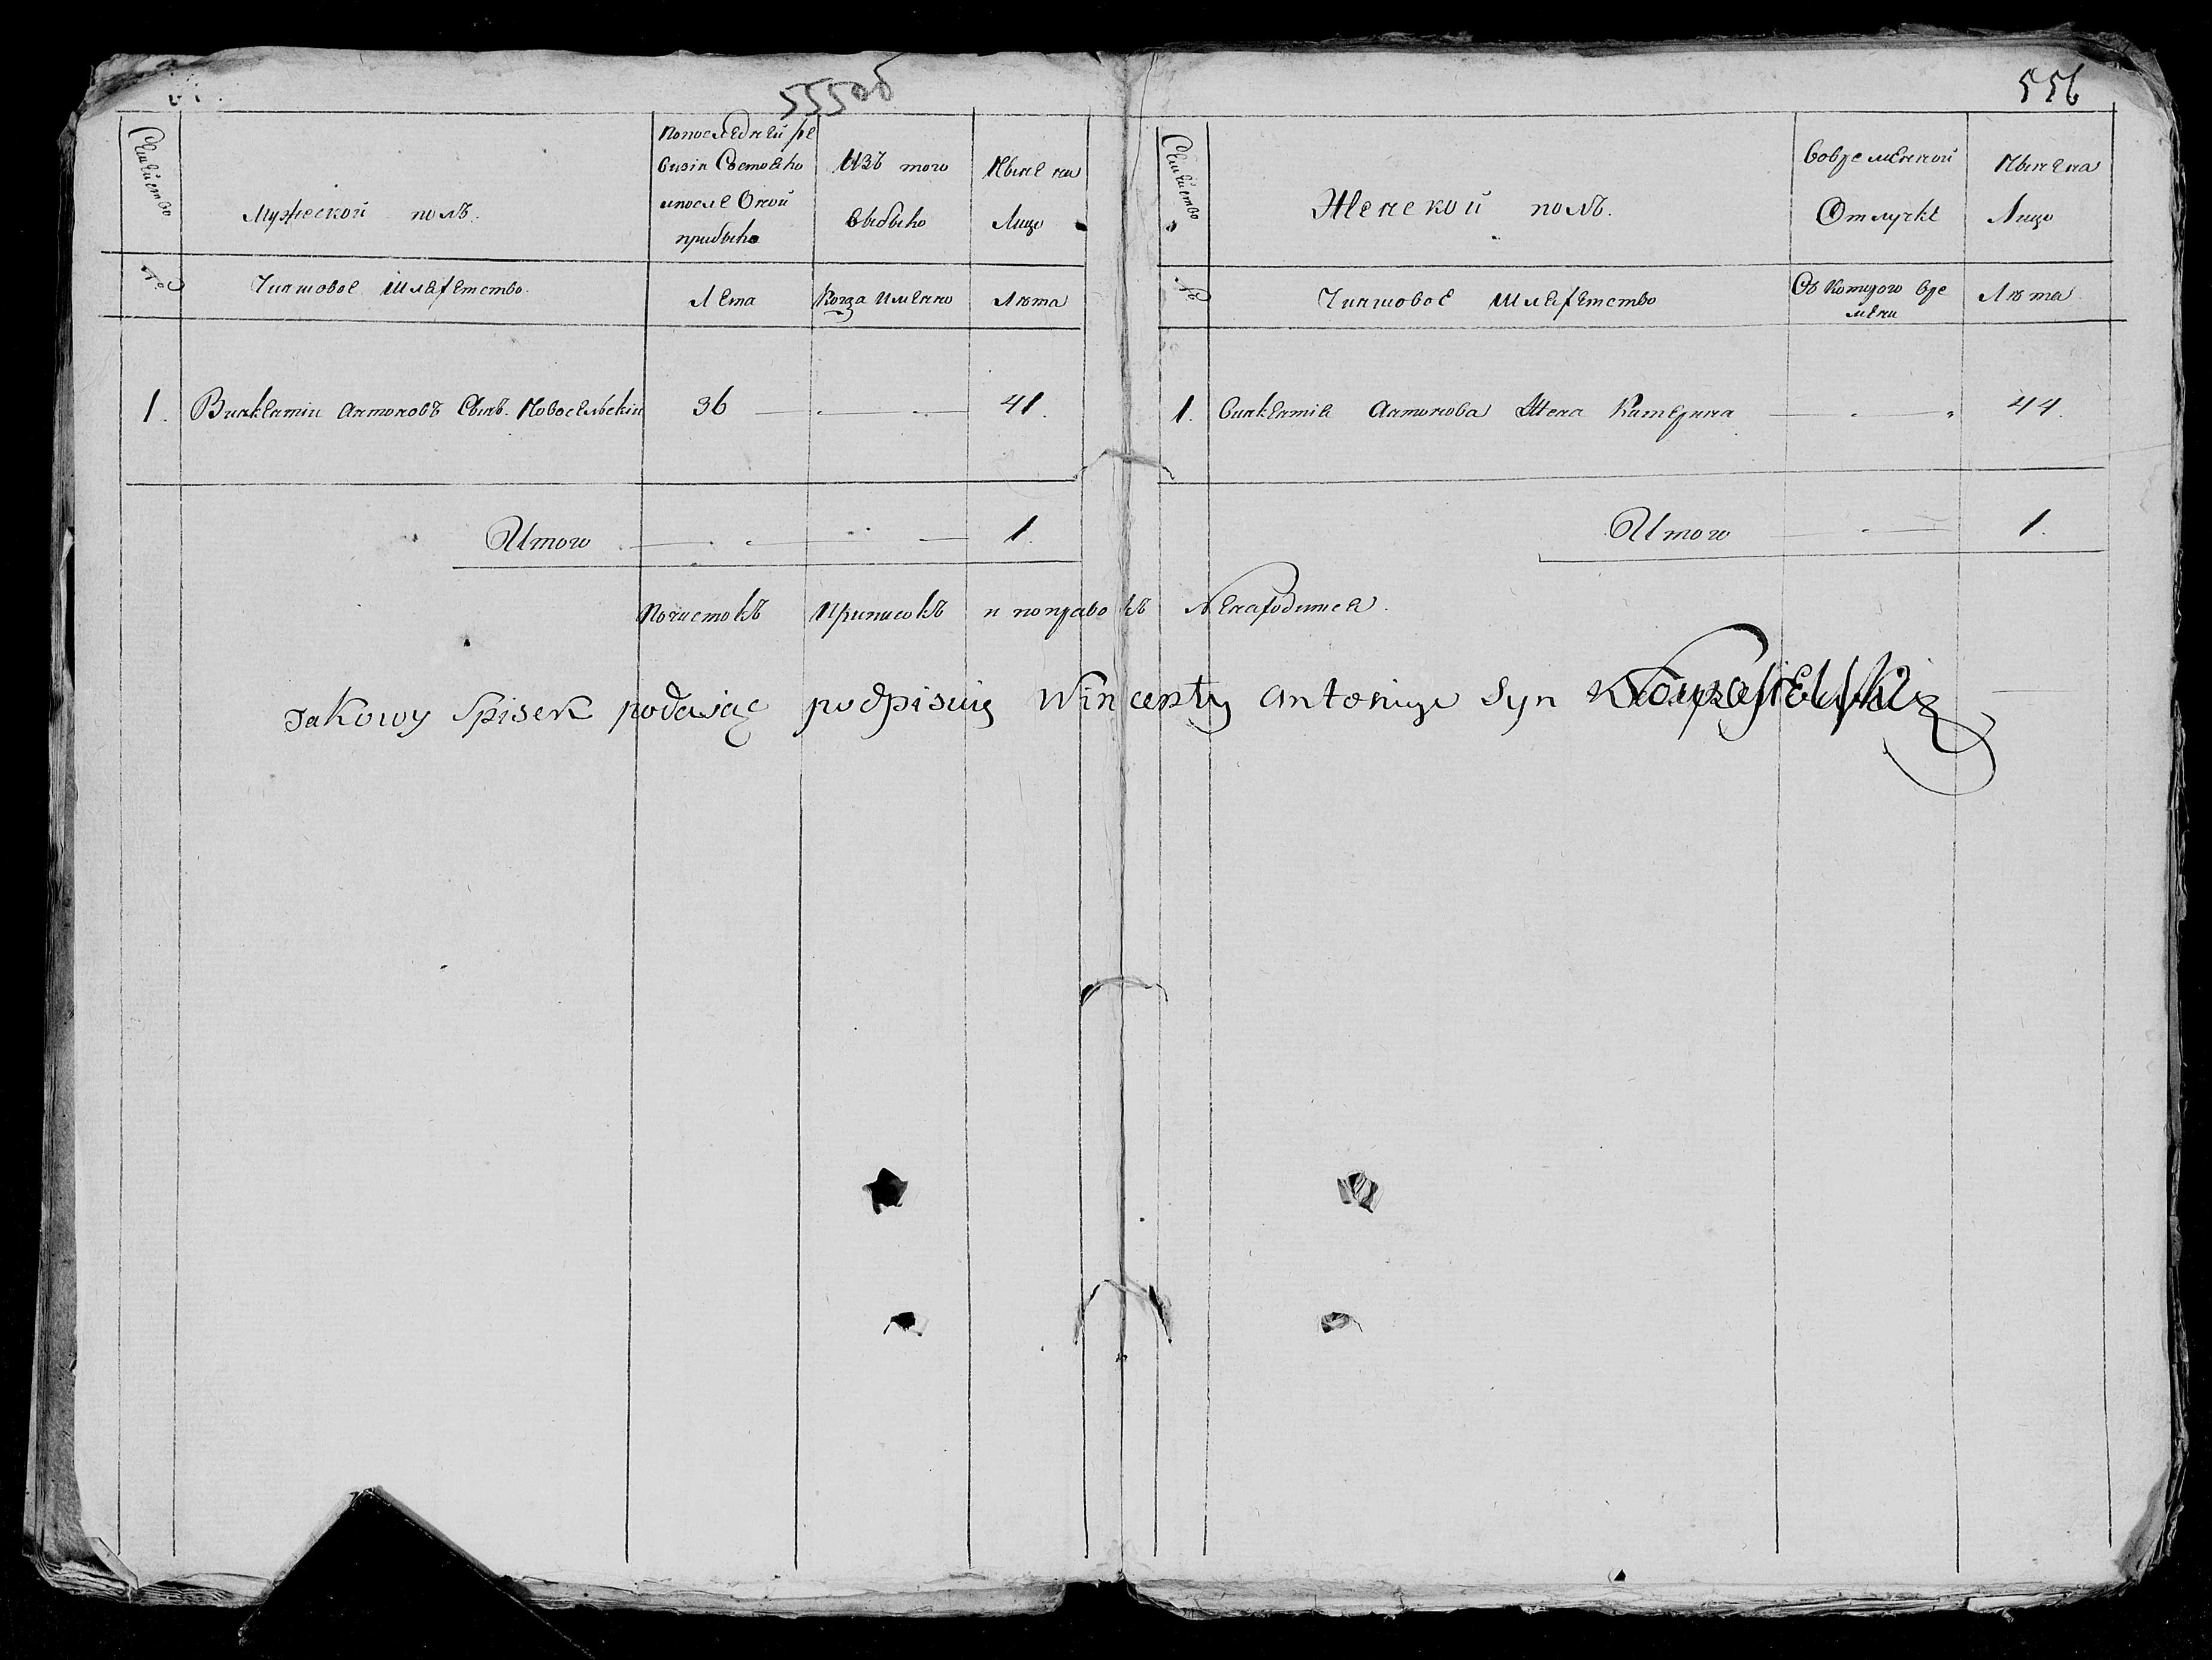 555об
Семейство
Мужескои полъ.
Попоследней ре
визіи Состояло
ипосле Оной
прибыло
Изъ того
выбыло
Ныне на
Лицо
№
Чиншовое Шляхетство.
Лета
Когда Именно
Лѣта
1. Винкентіи Антоновъ Сынъ. Новосельскіи 36 41.
Итого 1.
556
Семейство
Женскои полъ.
Вовременной
Отлучке
Ныне на
Лицо
№
Чиншовое Шляхетство
Съ Которого вре
мени
Лѣта
1. Винкентія Антонова Жена Катерина 44.
Итого 1.
Почистокъ Приписокъ и поправокъ Ненаходится.
Jakowy Spisek podając podpisuię Wincenty Antoniego Syn